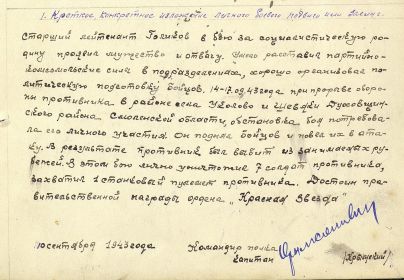 1. Краткое, конкретное изложение личного боевого подвига или заслуг.
Старший лейтенант Голиков в бою за социалистическую ро-
дину проявил мужество и отвагу. Умело расставив партийно-
комсомольские силы в подразделениях, хорошо организовал по-
литическую подготовку бойцов. 14-17.08.43 года, при прорыве оборо-
ны противника в районе села и Духовщин-
ского района Смоленской области, обстановка боя потребова-
ла его личного участия. Он поднял бойцов и повел их в ата-
ку. В результате противник был выбит из занимаемых ру-
бежей. В этом бою лично уничтожил 7 солдат противника,
захватил 1 станковый пулемет противника. Достоин пра-
вительственной награды ордена „Красная Звезда"
10 сентября 1943 года
Командир полка
Капитан